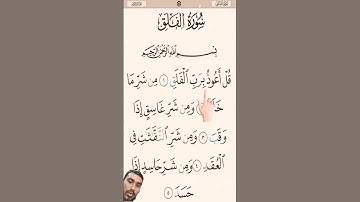 سُورَةُ الْفَلَقِ
بِسْمِ اللَّهِ الرَّحْمَٰنِ الرَّحِيمِ
قُلْ أَعُوذُ بِرَبِّ الْفَلَقِ ١ مِن شَرِّ مَا
خَلَقَ وَمِن شَرِّ غَاسِقٍ إِذَا
وَقَبَ ٣ وَمِن شَرِّ النَّفَّاثَاتِ فِي
الْعُقَدِ ٤ وَمِن شَرِّ حَاسِدٍ إِذَا
حَسَدَ ٥